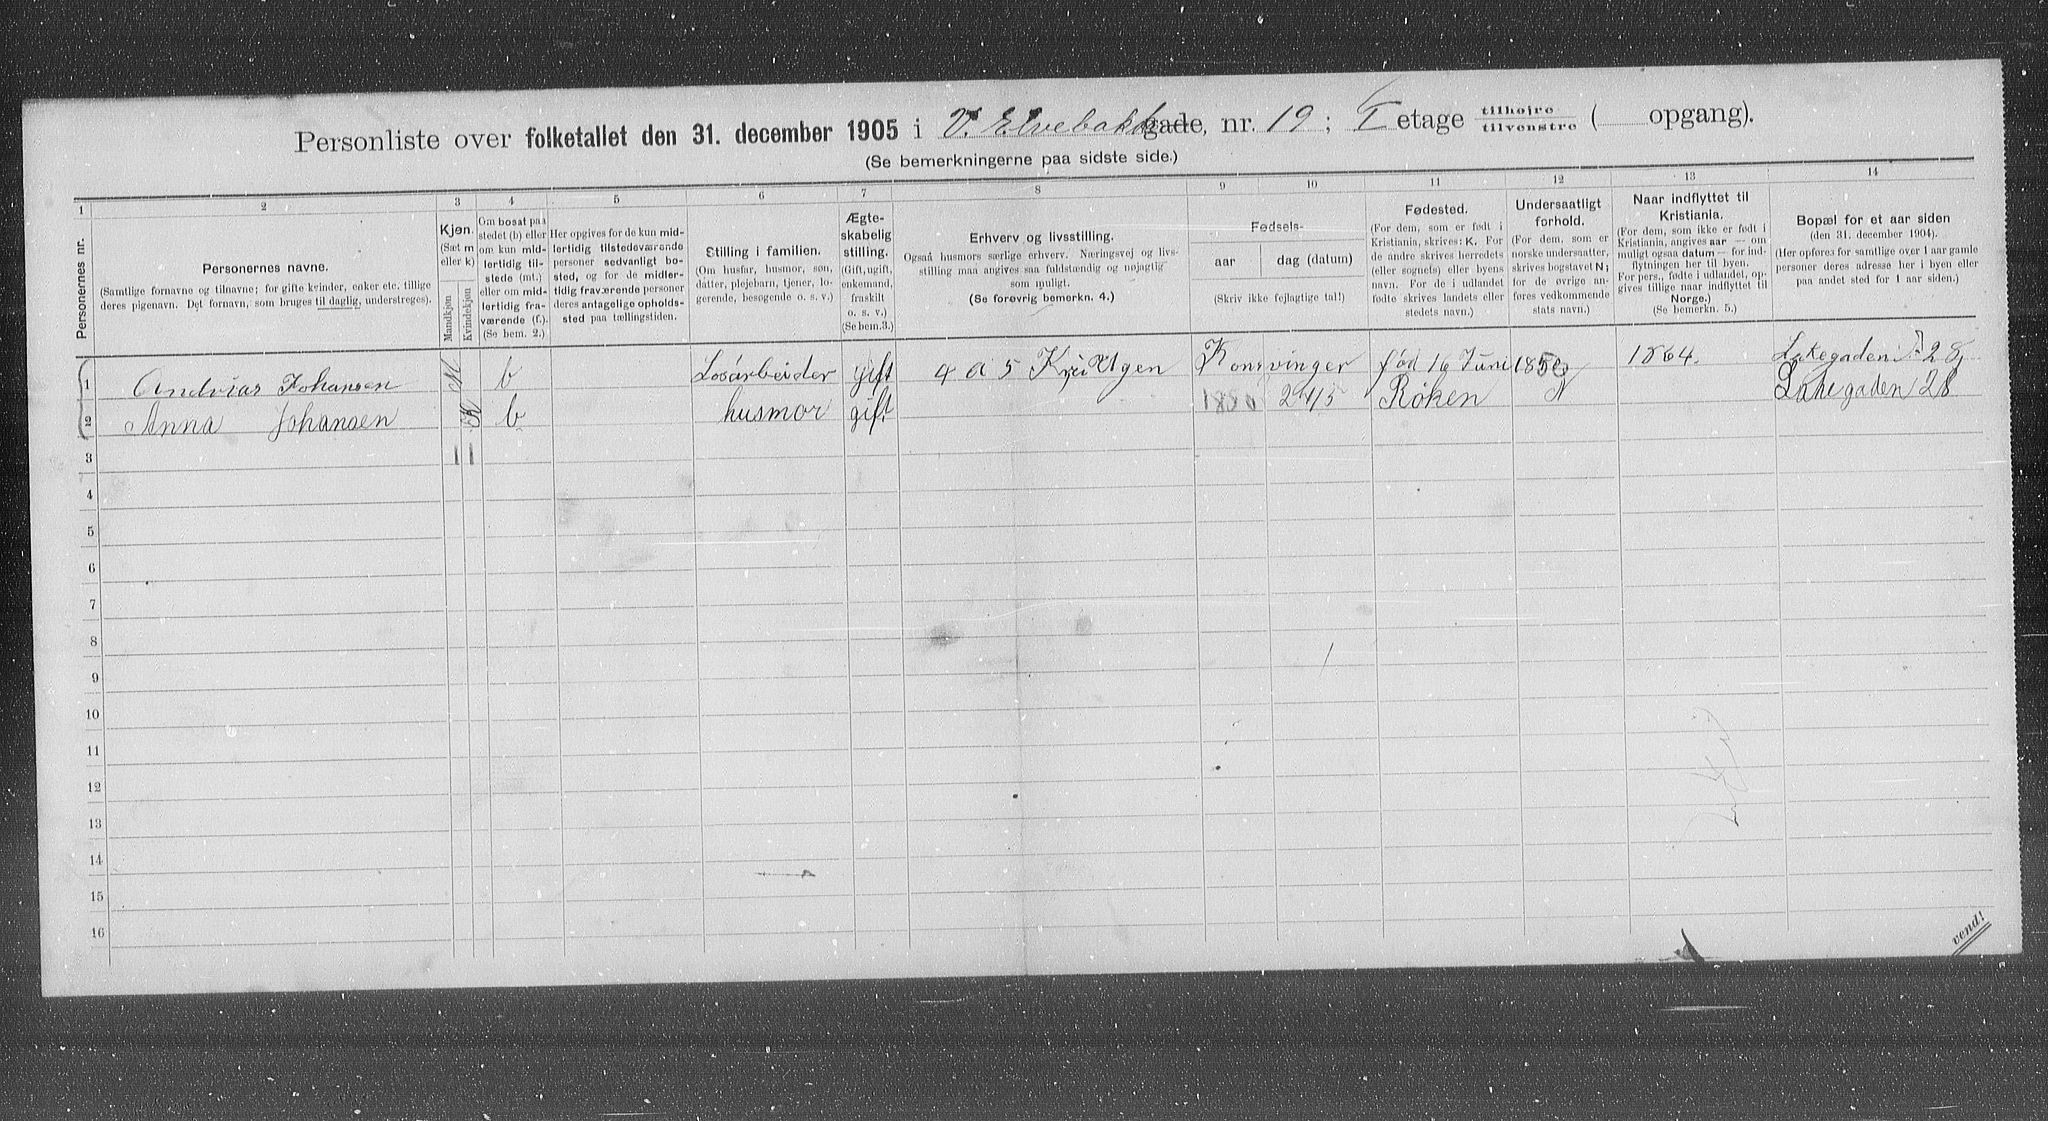 Personliste over folketallet den 31. december 1905 i V. Elvebakk gade, nr. 19; I etage tilhøjre / tilvenstre ( opgang).
(Se bemerkningerne paa sidste side.)
1 2 3 4 5 6 7 8 9 10 11 12 13 14
Personernes nr.
Personernes navne.
(Samtlige fornavne og tilnavne; for gifte kvinder, enker etc. tillige
deres pigenavn. Det fornavn, som bruges til daglig, understreges).
Kjøn.
(Sæt m
eller k)
Mandkjøn
Kvindekjøn
Om bosat paa
stedet (b) eller
om kun mid-
lertidig til-
stede (mt.)
eller om mid-
lertidig fra-
værende (f.).
(Se bem. 2.)
Her opgives for de kun mid-
lertidig tilstedeværende
personer sedvanligt bo-
sted, og for de midler-
tidig fraværende personer
deres antagelige opholds-
sted paa tællingstiden.
Stilling i familien.
(Om husfar, husmor, søn,
datter, plejebarn, tjener, lo-
gerende, besøgende o. s. v.)
Ægte-
skabelig
stilling.
(Gift, ugift,
enkemand,
fraskilt
o. s. v.)
(Se bem. 3.)
Erhverv og livsstilling.
Ogsaa husmors særlige erhverv. Næringsvej og livs-
stilling maa angives saa fuldstændig og nøjagtig
som muligt.
(Se forøvrig bemerkn. 4.)
Fødsels-
aar
dag (datum)
(Skriv ikke fejlagtige tal!)
Fødested.
(For dem, som er født i
Kristiania, skrives: K. For
de andre skrives herredets
(eller sognets) eller byens
navn. For de i udlandet
fødte skrives landets eller
stedets navn.)
Undersaatligt
forhold.
(For dem, som er
norske undersaatter,
skrives bogstavet N;
for de øvrige an-
føres vedkommende
stats navn.)
Naar indflyttet til
Kristiania.
(For dem, som ikke er født i
Kristiania, angives aar — om
muligt ogsaa datum — for ind-
flytningen her til byen.
For pers., fødte i udlandet, op-
gives tillige naar indflyttet til
Norge.)
(Se bemerkn. 5.)
Bopæl for et aar siden
(den 31. december 1904).
(Her opføres for samtlige over 1 aar gamle
personer deres adresse her i byen eller
paa andet sted for 1 aar siden.)
1 Andrias Johansen M b Losarbeider gift 4 a 5 Kr Ugen Konsvinger fød 16 Juni 1850 1864. 28,
2 Anna Johansen K b husmor gift 1880 24/5 Røken N Lakegaden 28
3
4
5
6
7
8
9
10
11
12
13
14
15
16
vend!